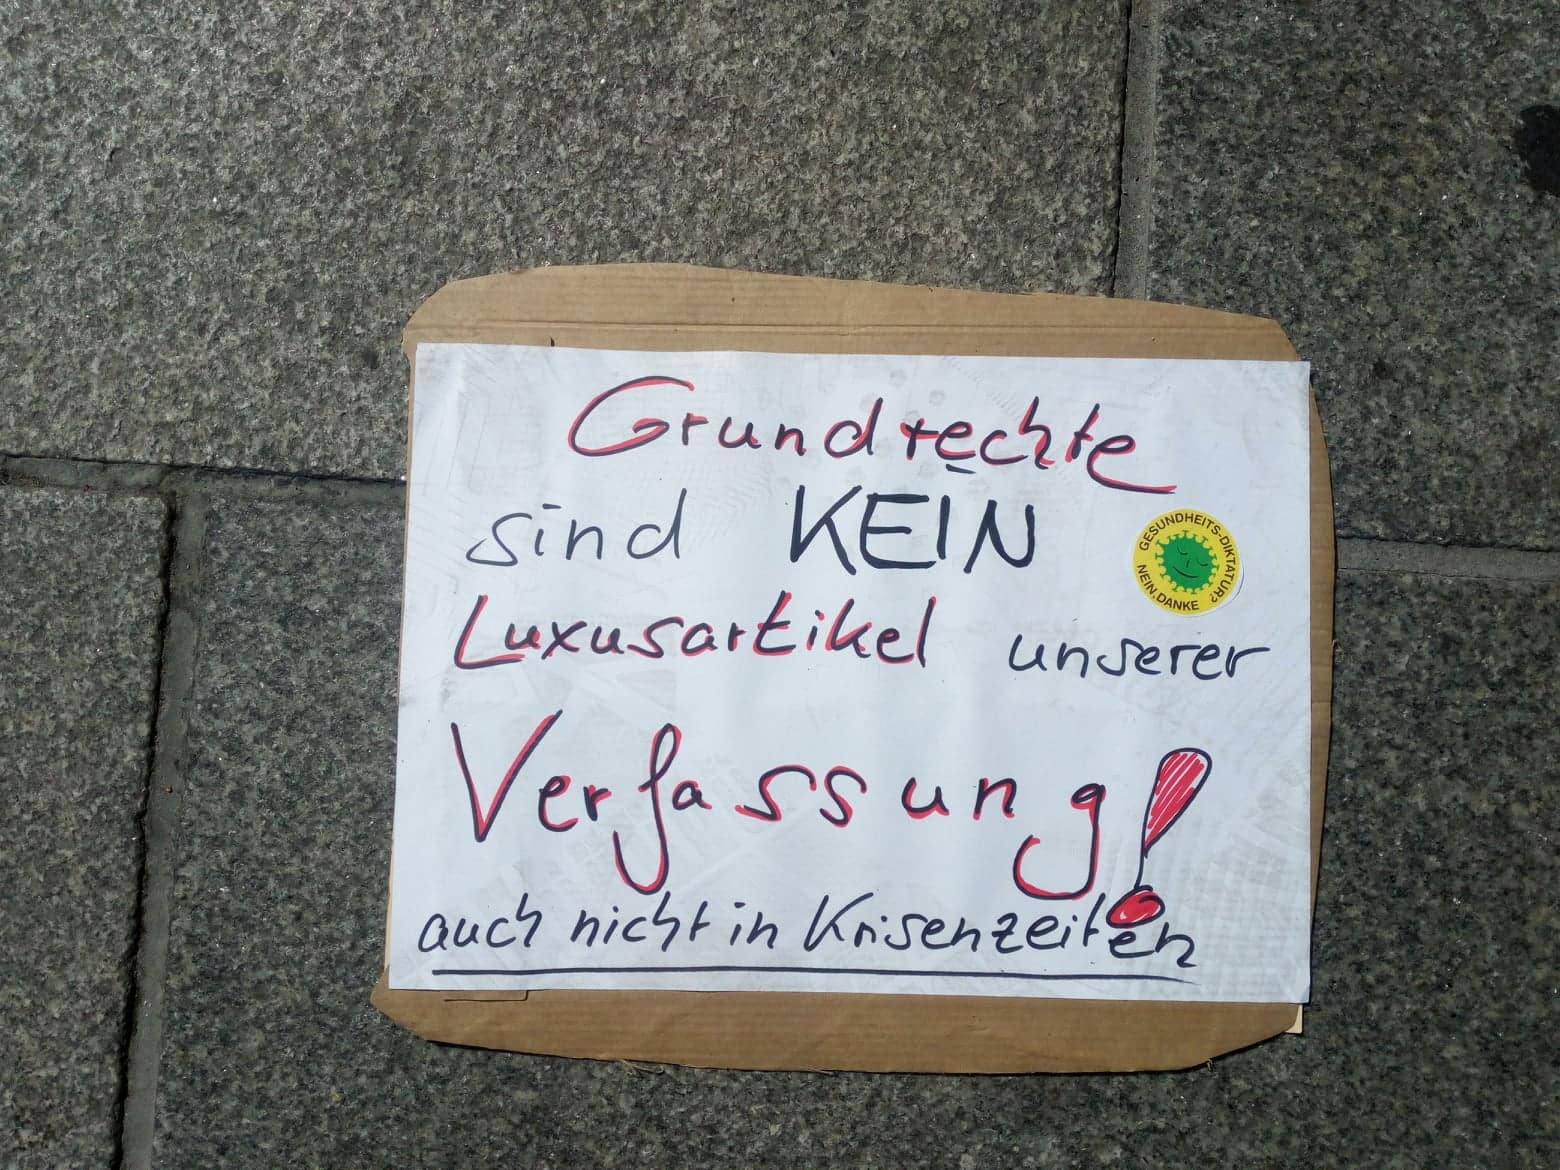 Grundrechte
sind KEIN
Luxusartikel unserer
Verfassung!
auch nicht in Krisenzeiten
GESUNDHEITS-DIKTATUR?
NEIN, DANKE